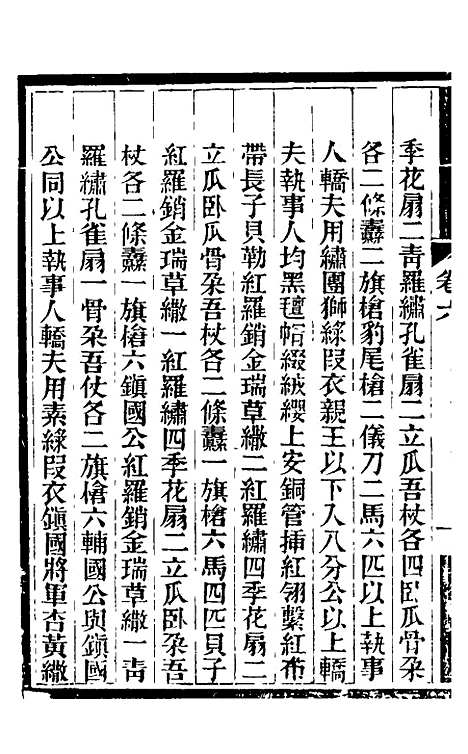 季花扇二青羅繡孔雀扇二立瓜吾杖各四臥瓜骨朶
各二條纛二旗槍豹尾槍二儀刀二馬六匹以上執事
人轎夫用繡團獅綠叚衣親王以下入八分公以上轎
夫執事人均黑氊帽綴絨纓上安銅管揷紅翎繫紅布
帶長子貝勒紅羅銷金瑞草繖二紅羅繡四季花扇二
立瓜臥瓜骨朶吾杖各二條纛一旗槍六馬四匹貝子
紅羅銷金瑞草繖一紅羅繡四季花扇二立瓜臥朶吾
杖各二條纛一旗槍六鎭國公紅羅銷金瑞草繖一靑
羅繡孔雀扇一骨朶吾仗各二旗槍六輔國公與鎭國
公同以上執事人轎夫用素綠叚衣鎭國將軍杏黃繖
卷六